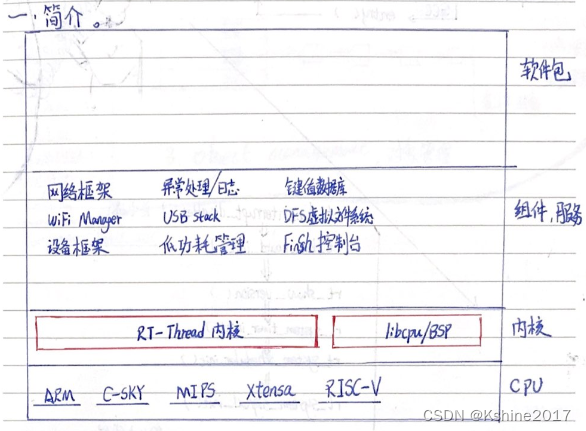 一.简介。
软件包
网络框架 异常处理/日志 键值数据库
WiFi Manager USB stack DFS虚拟文件系统
设备框架 低功耗管理 Finsh 控制台
组件,服务
RT-Thread 内核 libcpu/BSP 内核
ARM C-SKY MIPS Xtensa RISC-V CPU
CSDN @Kshine2017